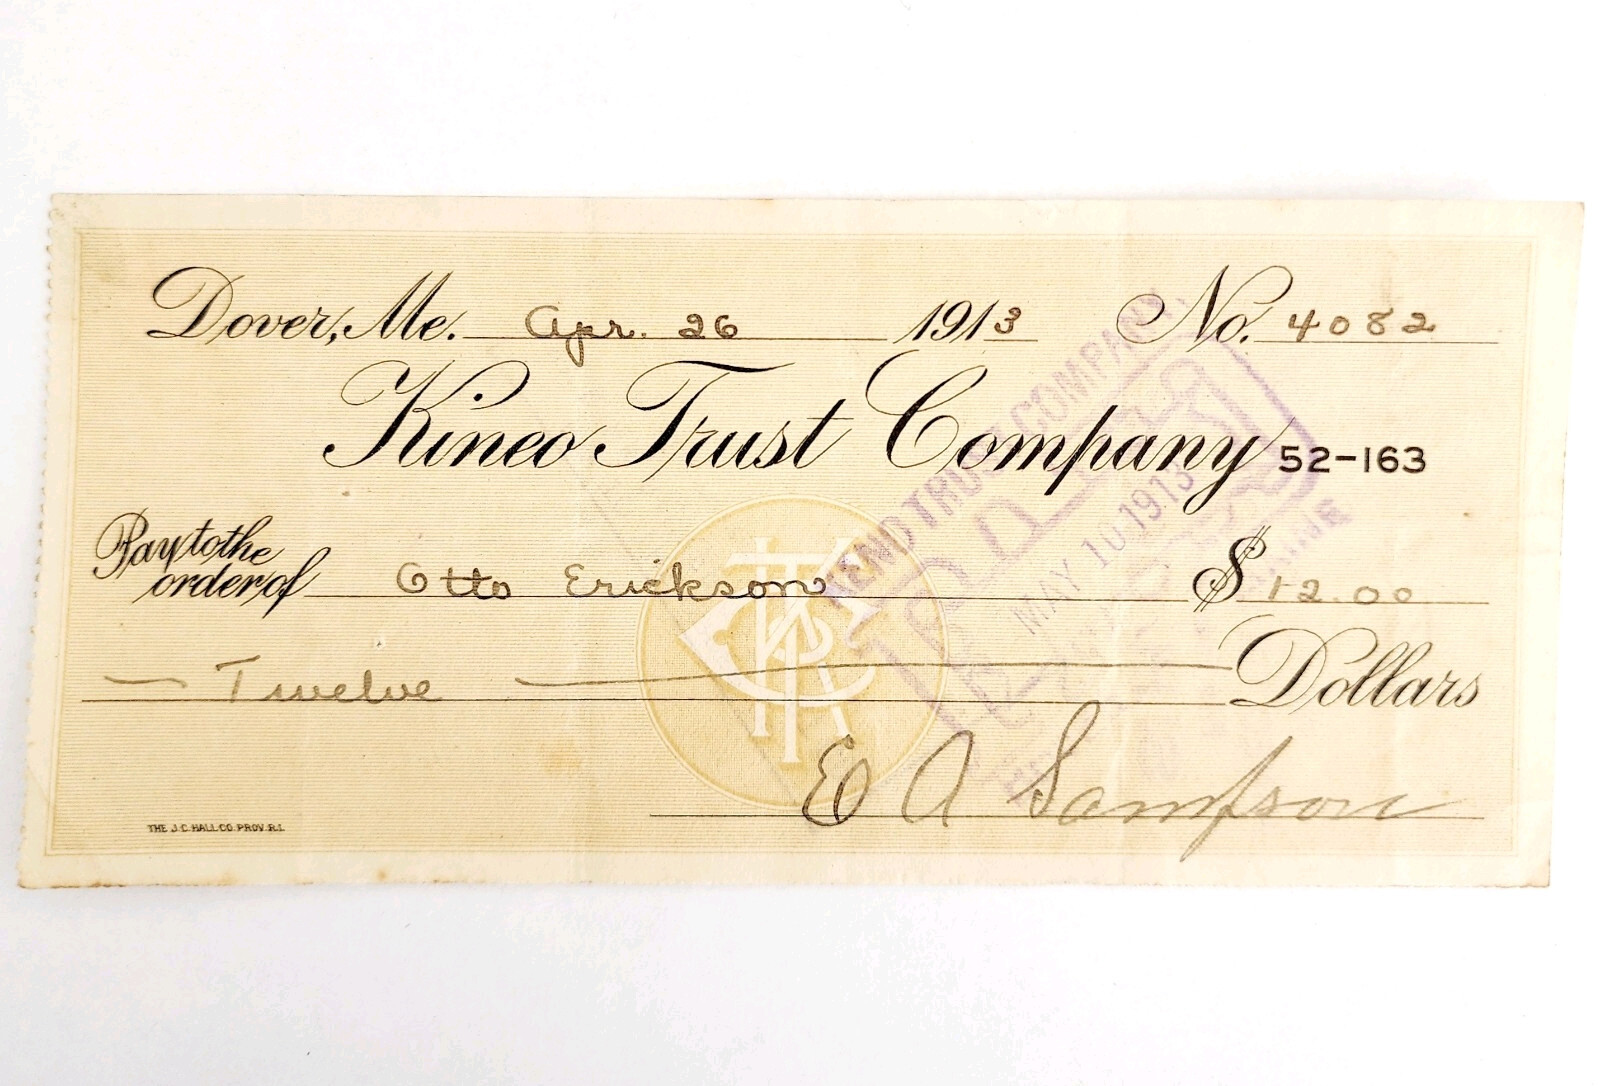 Dover, Me. Apr. 26 1913 No. 4082
Kineo Trust Company 52-163
Pay to the
order of Otto Erickson $ 12.00
Twelve Dollars
E A Sampson
THE J.C. HALL CO. PROV. R.I.
TRUST COMPANY
MAY 10 1913